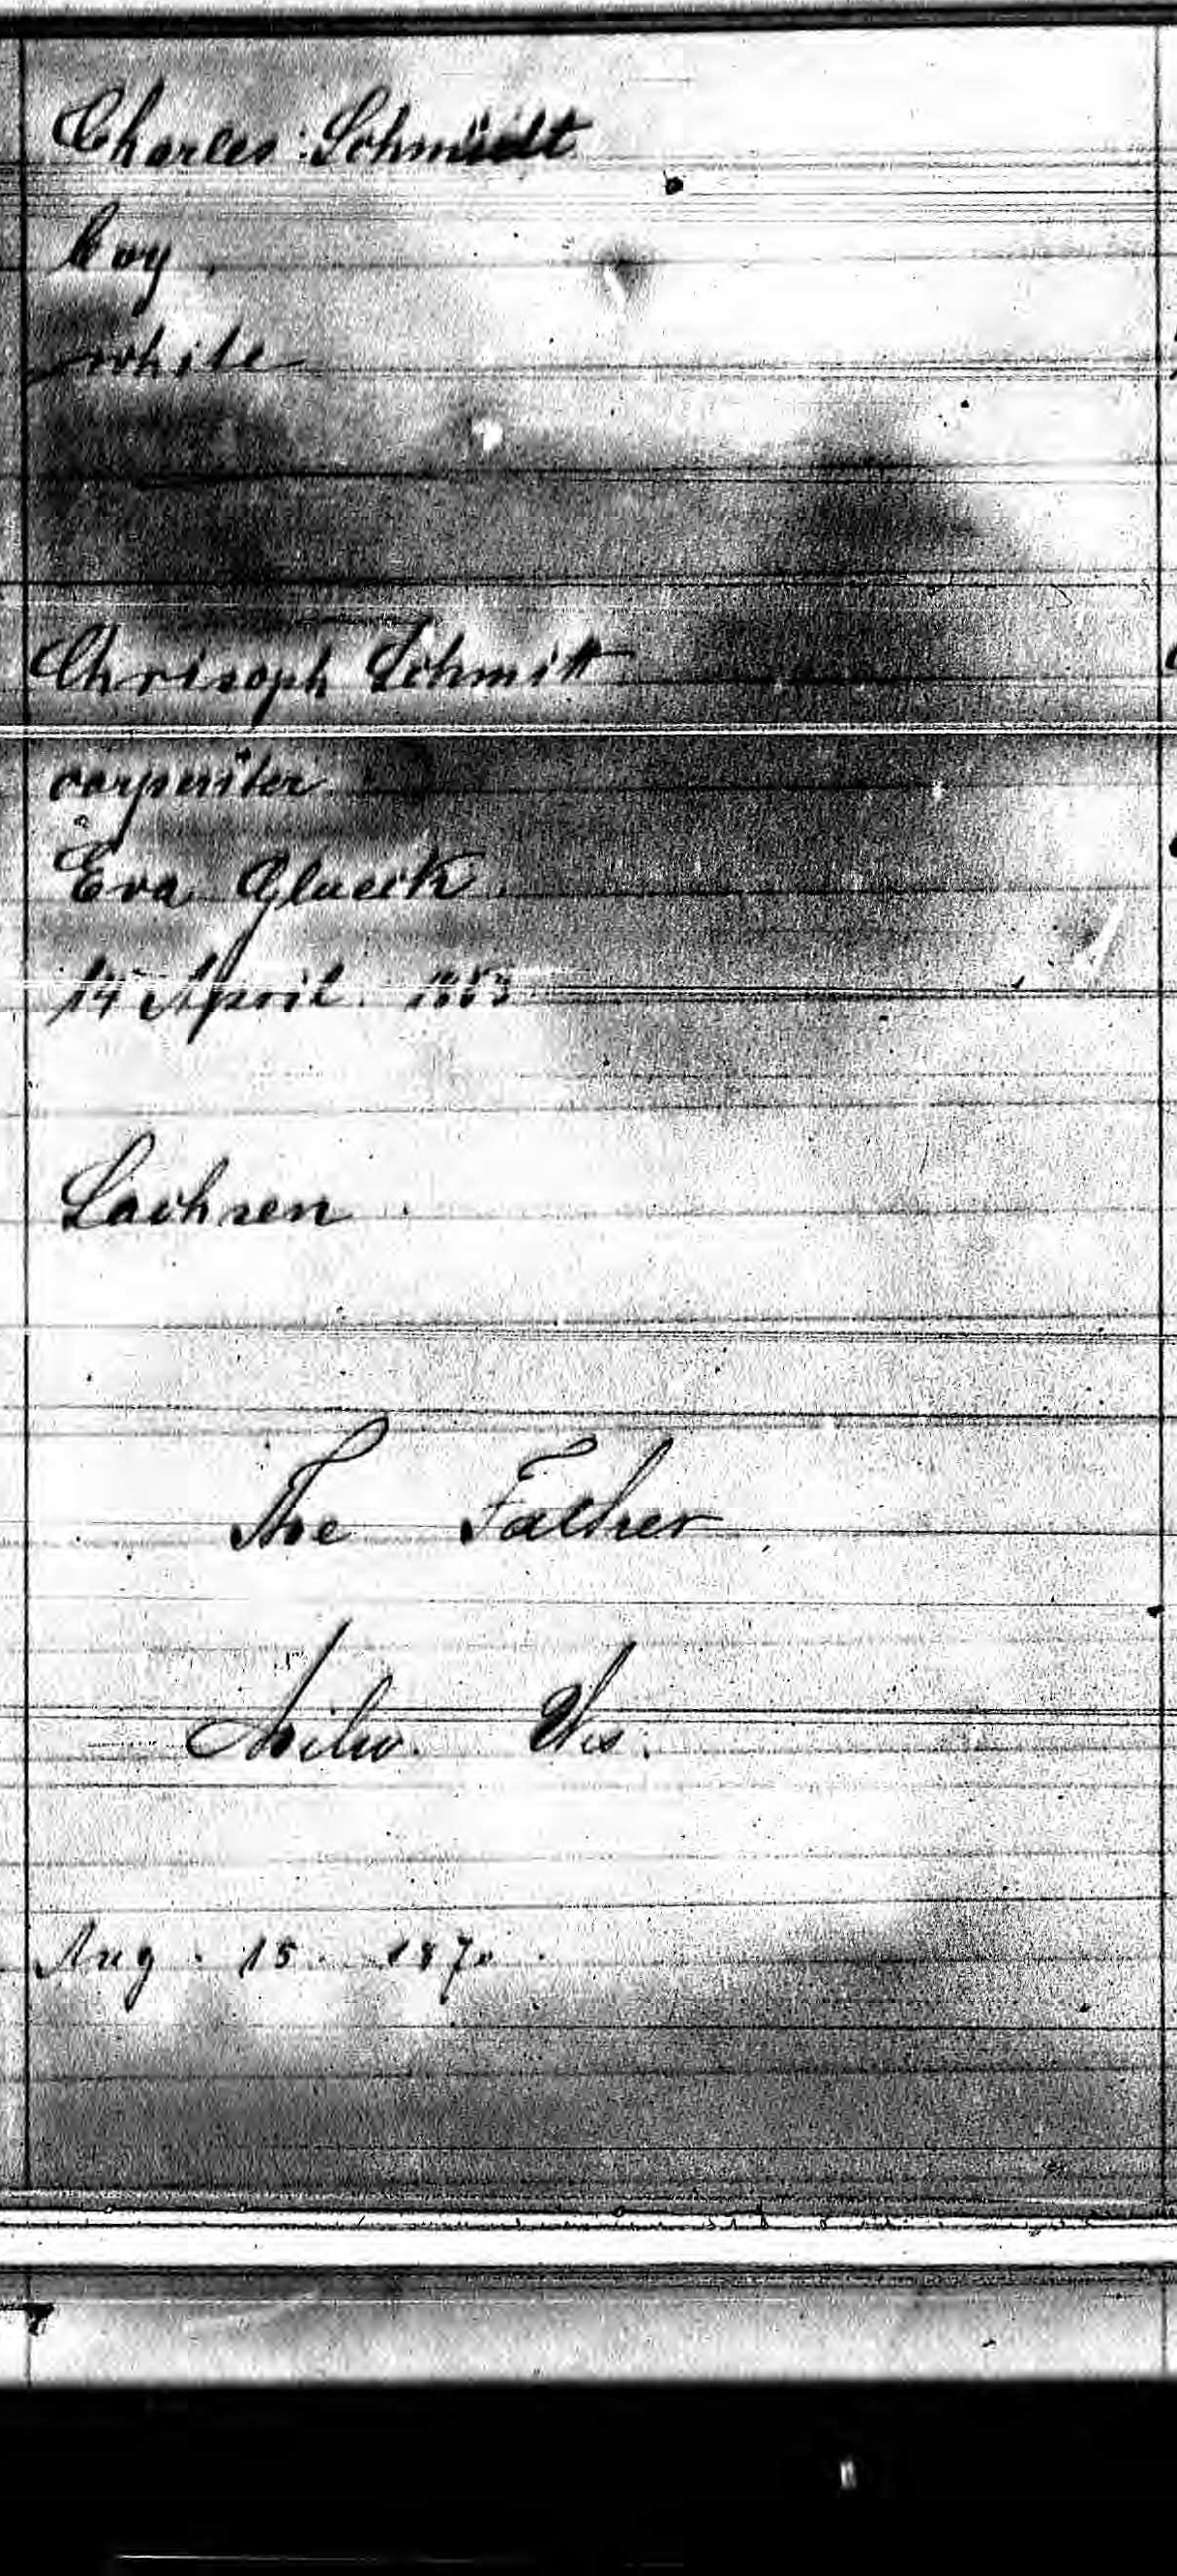 Charles Schmidt
boy
white
Chrisoph Schmitt
carpenter
Eva Glueck
14 April 1853
Sachsen
The Father
Milw. Wis.
Aug. 15. 1870